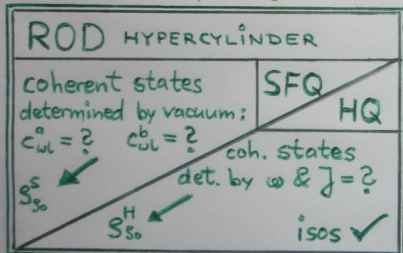 ROD HYPERCYLINDER
coherent states
determined by vacuum:
cᵃ_ωl = ? cᵇ_ωl = ?
SFQ
HQ
coh. states
det. by ω & J = ?
isos ✓